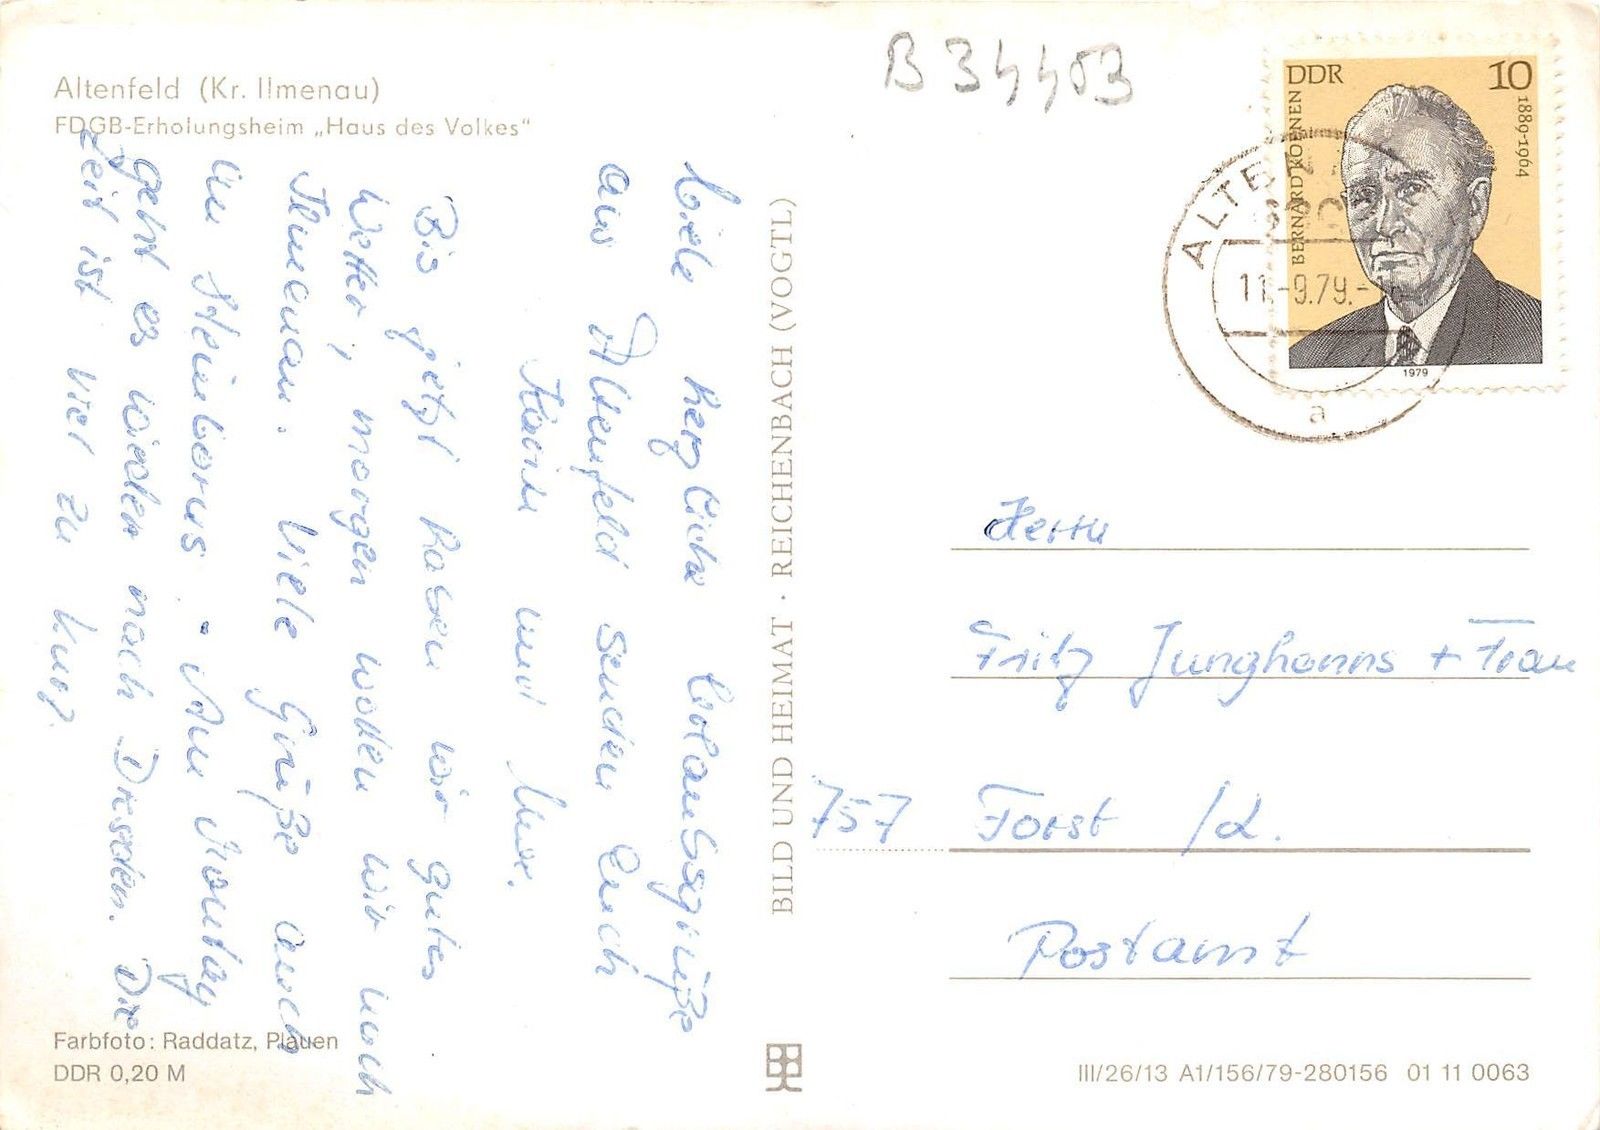 Altenfeld (Kr. Ilmenau)
FDGB-Erholungsheim „Haus des Volkes"
B 34453
DDR 10
BERNARD KOENEN
1889-1964
1979
ALTE
11.-9.79.-
a
Viele herzliche Urlaubsgrüße
aus Altenfeld senden Euch
Karin und
Bis jetzt haben wir gutes
Wetter, morgen wollen wir nach
Ilmenau. Viele Grüße auch
an Steinborns. Am Montag
geht es wieder nach Dresden. Die
Zeit ist viel zu kurz.
BILD UND HEIMAT · REICHENBACH (VOGTL)
Herrn
Fritz Junghanns + Frau
757 Forst /L.
Postamt
Farbfoto: Raddatz, Plauen
DDR 0,20 M
III/26/13 A1/156/79-280156 01 11 0063